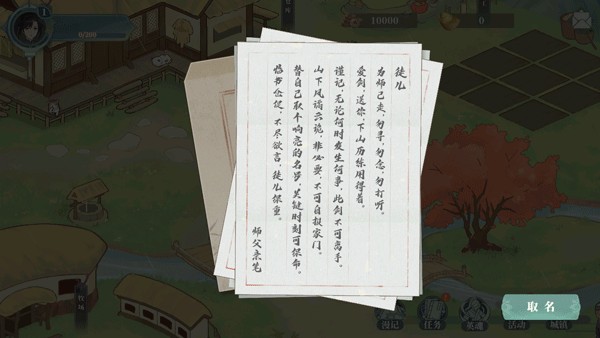 徒儿
为师已走，勿寻，勿念，勿打听。
爱剑送你，下山历练用得着。
谨记，无论何时发生何事，此剑不可离手。
山下风谲云诡，非必要，不可自报家门。
替自己取个响亮的名号，关键时刻可保命。
临书仓促，不尽欲言，徒儿保重。
师父亲笔
1
0/200
10000
0
漫记
任务
英魂
活动
城镇
取名